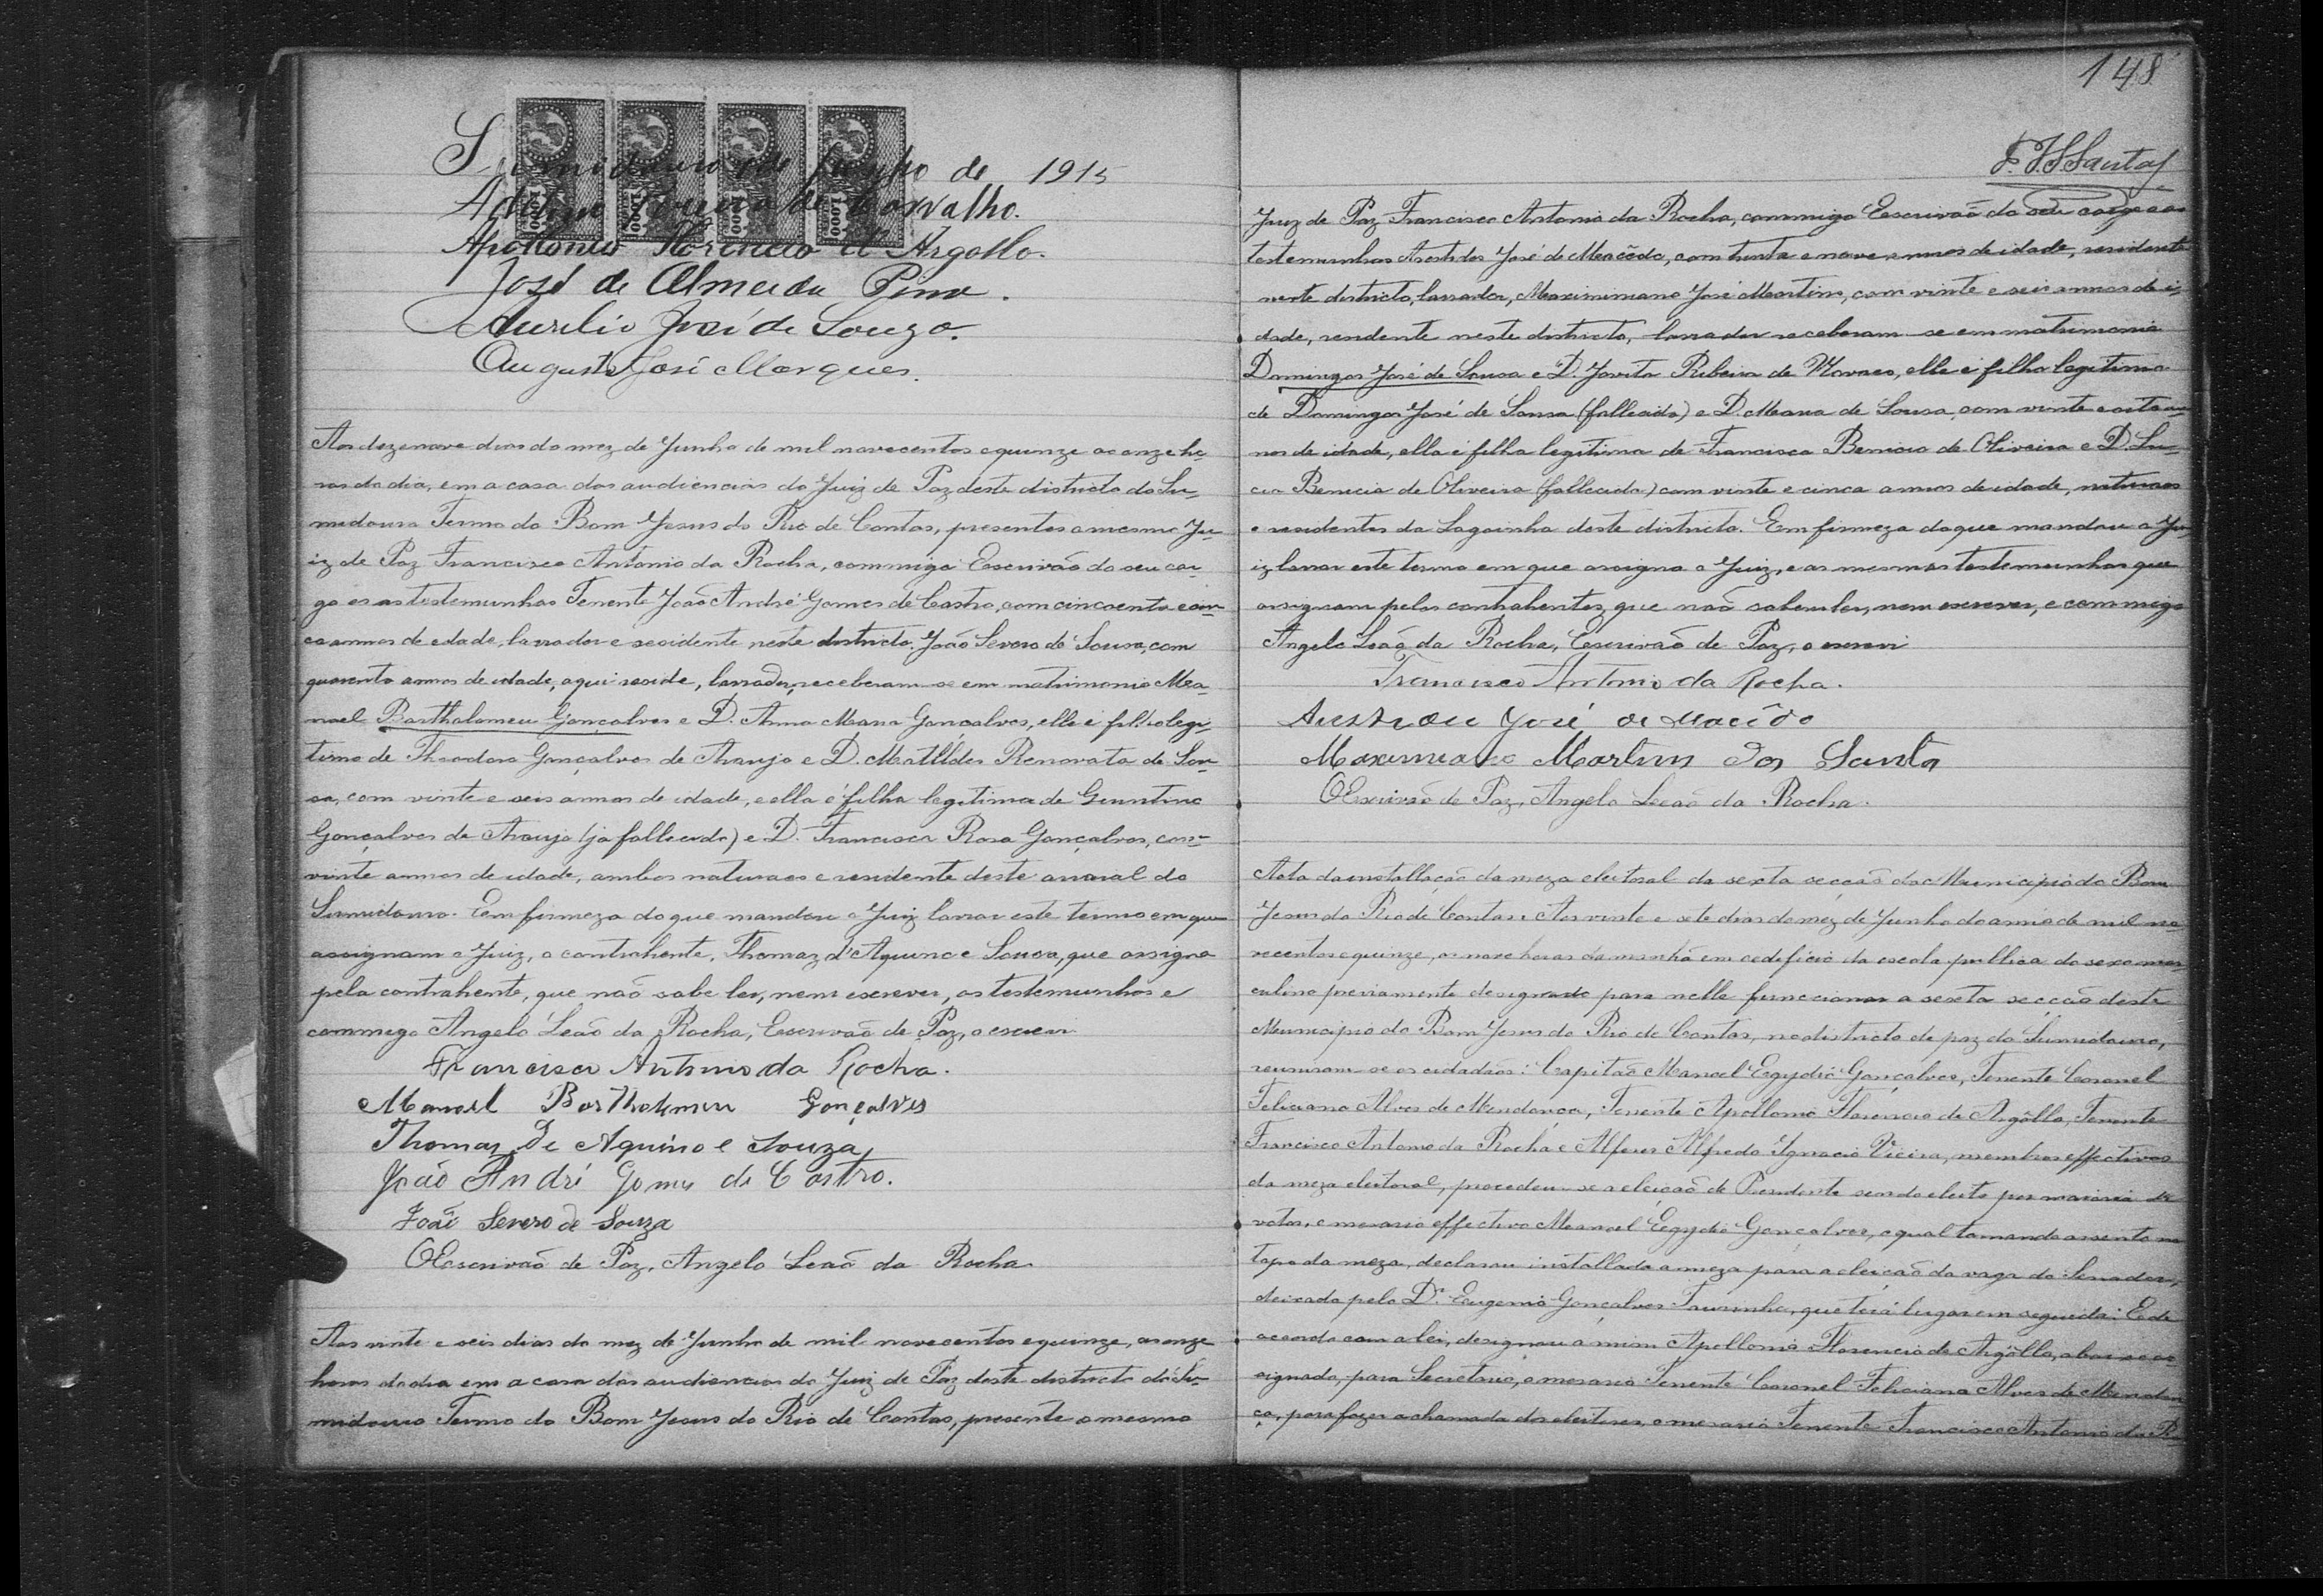 Sumidouro de Junho de 1915
de Carvalho.
Apollonio Florencio d'Argollo.
José de Almeida Pina.
Aurelio José de Souza.
Augusto José Marques.
Aos dezenove dias do mez de Junho de mil novecentos e quinze as onze ho-
ras do dia, em a casa das audiencias do Juiz de Paz deste districto do Su-
midouro Termo do Bom Jesus do Rio de Contas, presentes o mesmo Ju-
iz de Paz Francisco Antonio da Rocha, commigo Escrivão do seu car-
go e as testemunhas Tenente João André Gomes de Castro, com cincoenta e cin-
co annos de edade, lavrador e residente neste districto. João Severo de Sousa, com
quarenta annos de idade, aqui reside, lavrador, receberam-se em matrimonio Ma-
noel Bartholomeu Gonçalves e D. Anna Maria Gonçalves, elle é filho legi-
timo de Theodoro Gonçalves de Araujo e D. Matildes Renovata de Sou-
sa, com vinte e seis annos de idade, e ella é filha legitima de
Gonçalves de Araujo (já fallecido) e D. Francisca Rosa Gonçalves, com
vinte annos de idade, ambos naturaes e residente deste arraial do
Sumidouro. Em firmeza do que mandou o Juiz lavrar este termo em que
assignam o Juiz, o contrahente, Thomaz d'Aquino e Sousa, que assigna
pela contrahente, que não sabe ler, nem escrever, as testemunhas e
commigo Angelo Leão da Rocha, Escrivão de Paz, o escrevi
Francisco Antonio da Rocha.
Manoel Bartholomeu Gonçalves
Thomaz De Aquino e Souza
João André Gomes de Castro.
João Severo de Souza
O Escrivão de Paz, Angelo Leão da Rocha
Aos vinte e seis dias do mez de Junho de mil novecentos e quinze, as onze
horas do dia em a casa das audiencias do Juiz de Paz deste districto do Su-
midouro Termo do Bom Jesus do Rio de Contas, presente o mesmo
148
Juiz de Paz Francisco Antonio da Rocha, commigo Escrivão do seu cargo e as
testemunhas José de Macêdo, com trinta e nove annos de idade, residente
neste districto, lavrador, Maximiniano José Martins, com vinte e seis annos de i-
dade, residente neste districto, lavrador receberam-se em matrimonio
Domingos José de Sousa e D. Jovita Ribeira de Novaes, elle é filho legitimo
de Domingos José de Sousa (fallecido) e D. Maria de Sousa, com vinte e oito an-
nos de idade, ella é filha legitima de Francisco Benicio de Oliveira e D. Lu-
cia Benicia de Oliveira (fallecida) com vinte e cinco annos de idade, naturaes
e residentes da Lagoinha deste districto. Em firmeza do que mandou o Ju-
iz lavrar este termo em que assigna o Juiz, e as mesmas testemunhas que
assignam pelos contrahentes, que não sabem ler, nem escrever, e commigo
Angelo Leão da Rocha, Escrivão de Paz, o escrevi
Francisco Antonio da Rocha.
José de Macêdo
Maximiano Martins dos Santos
O Escrivão de Paz, Angelo Leão da Rocha.
Acta da installação da meza eleitoral da sexta secção do Municipio do Bom
Jesus do Rio de Contas. Aos vinte e sete dias do mez de Junho do anno de mil no-
vecentos e quinze, as nove horas da manhã em o edificio da escola publica do sexo mas-
culino previamente designado para nelle funccionar a sexta secção deste
Municipio do Bom Jesus do Rio de Contas, no districto de paz do Sumidouro,
reuniram-se os cidadãos: Capitão Manoel Egydio Gonçalves, Tenente Coronel
Feliciano Alves de Mendonça, Tenente Apollonio Florencio de Argôllo, Tenente
Francisco Antonio da Rocha e Alferes Alfredo Ignacio Vieira, membros effectivos
da meza eleitoral, procedeu-se a eleição de Presidente sendo eleito por maioria de
votos, o mesario effectivo Manoel Egydio Gonçalves, o qual tomando assento no
topo da meza, declarou installada a meza para a eleição da vaga do Senador,
deixada pelo Dr. Eugenio Gonçalves Tourinho, que terá lugar em seguida: E de
accordo com a lei, designou a mim Apollonio Florencio de Argôllo, abaixo as-
signado, para Secretario, o mesario Tenente Coronel Feliciano Alves de Mendon-
ça, para fazer a chamada dos eleitores, o mesario Tenente Francisco Antonio da Ro-